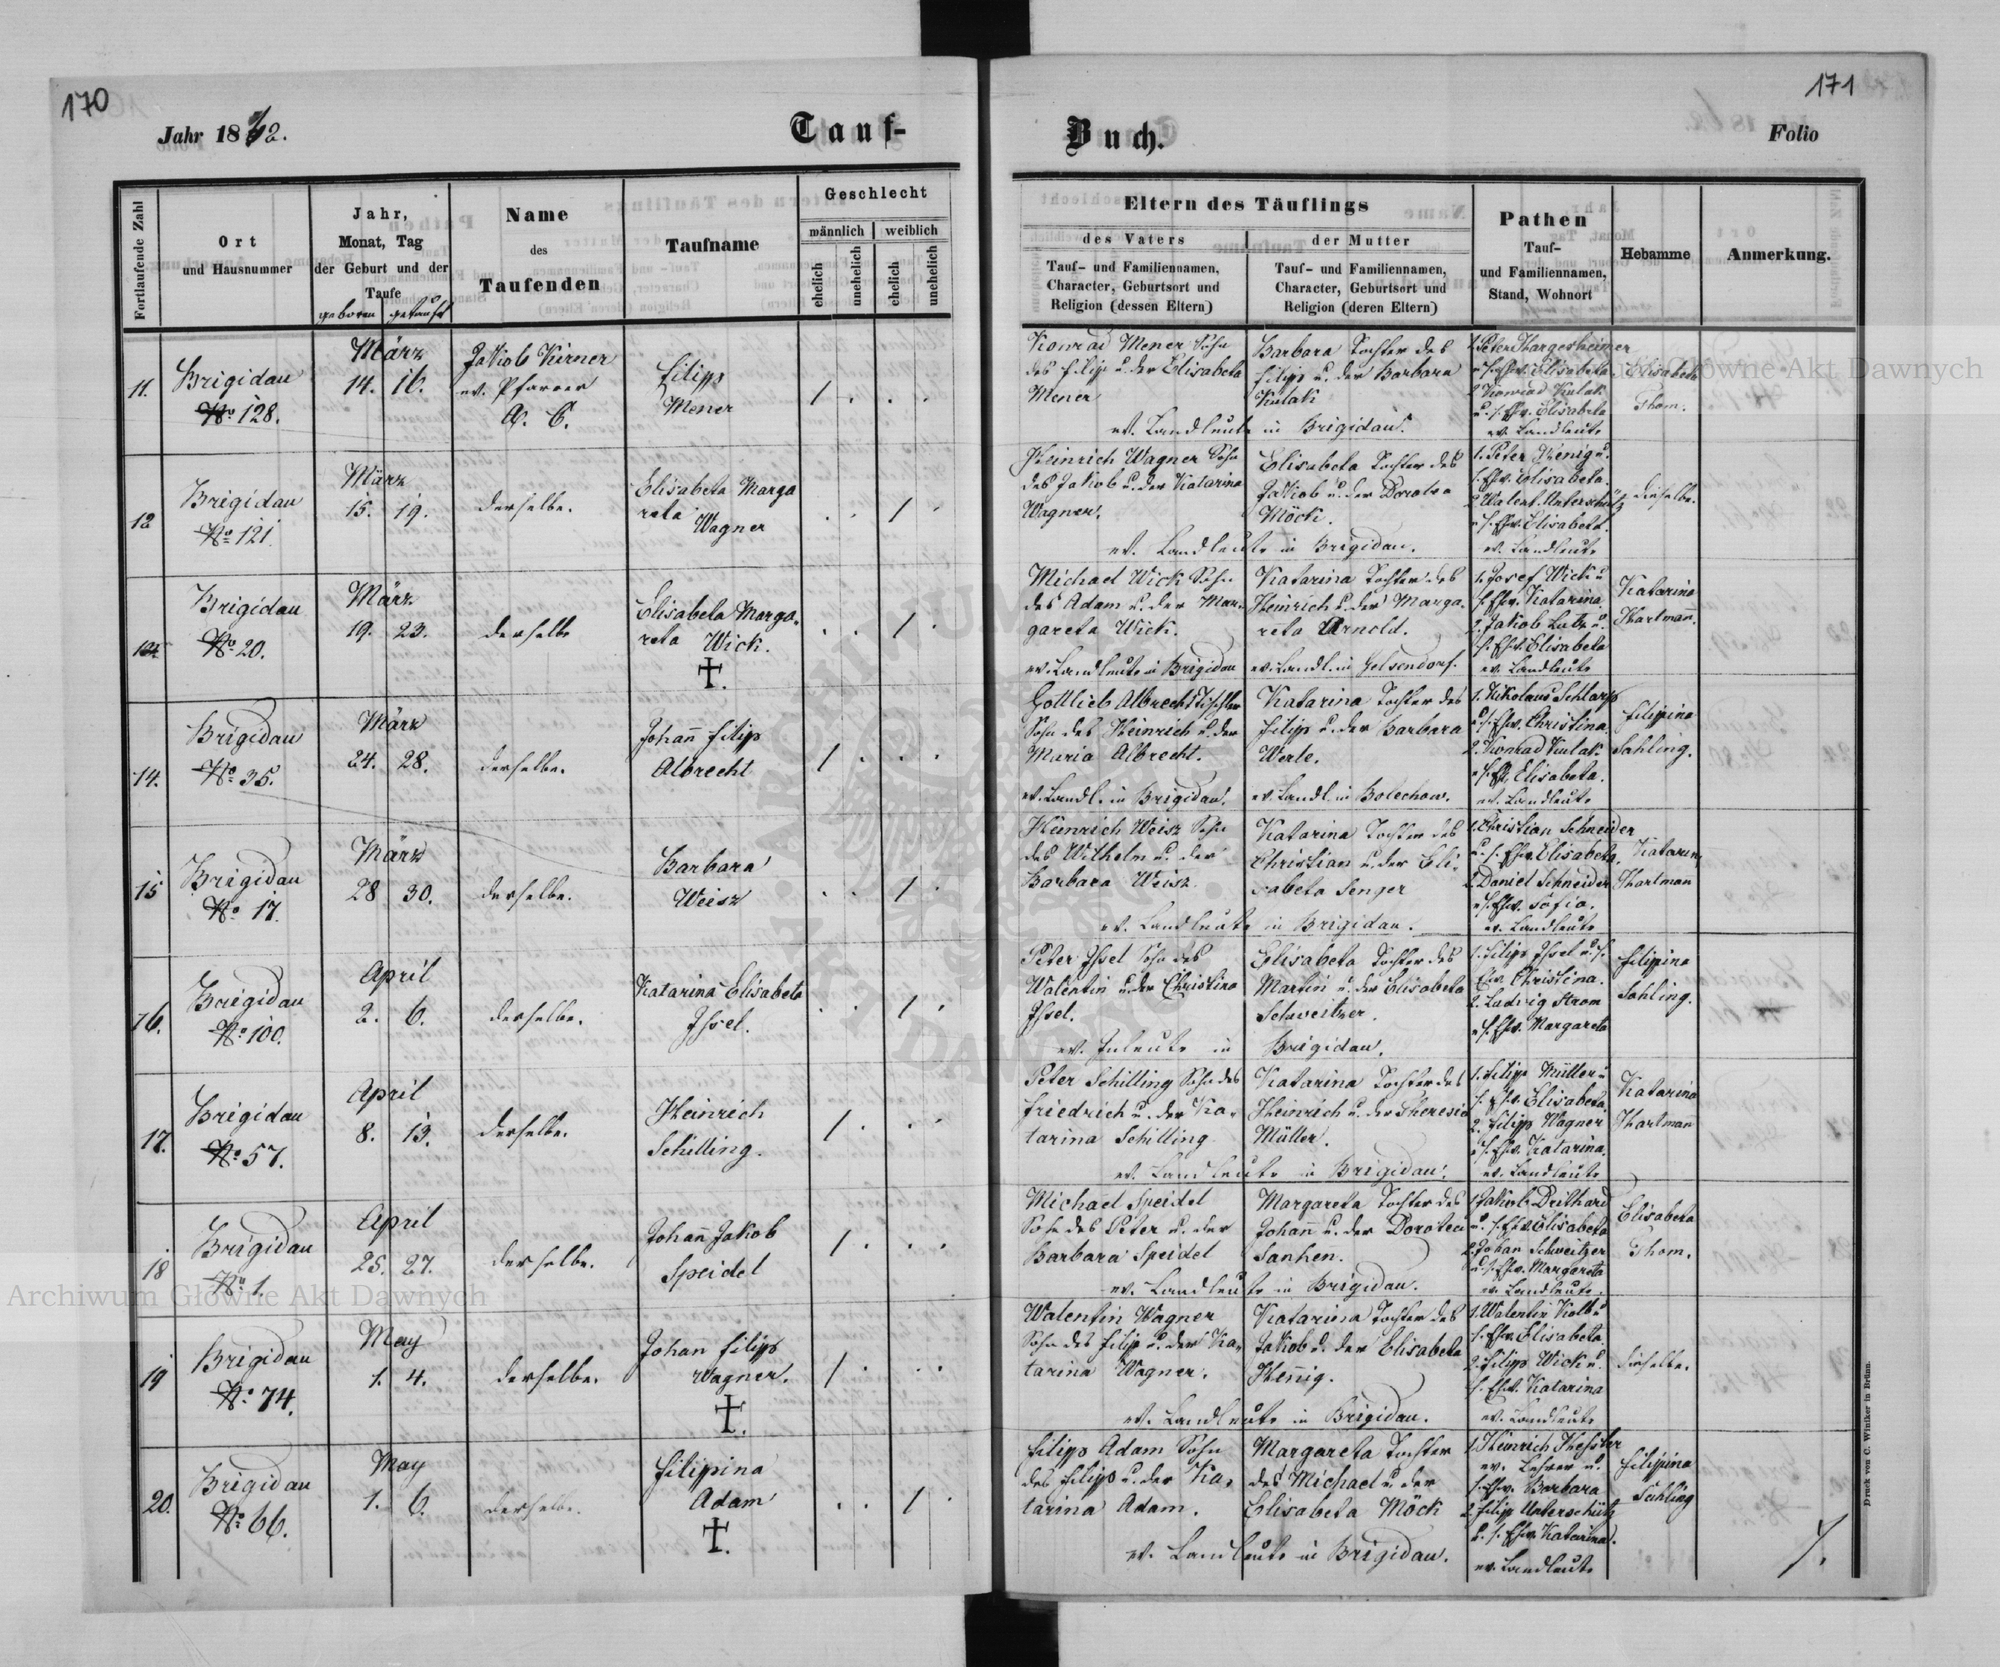 170
Jahr 1862.
Tauf-
Fortlaufende Zahl
Ort
und Hausnummer
Jahr,
Monat, Tag
der Geburt und der
Taufe
geboren getauft
Name
des
Taufenden
Taufname
Geschlecht
männlich weiblich
ehelich unehelich ehelich unehelich
11. Brigidau
No 128.
März
14. 16.
Jakob Kirner
ev. Pfarrer
A. C.
Filipp
Mener
12 Brigidau
No 121.
März
15. 19.
derselbe.
Elisabeta Marga
reta Wagner
Brigidau
No 20.
März
19. 23.
derselbe
Elisabeta Marga-
reta Wick.
14. Brigidau
No 35.
März
24. 28.
derselbe.
Johann Filipp
Albrecht
15 Brigidau
No 17.
März
28 30.
derselbe.
Barbara
Weisz
16. Brigidau
No 100.
April
2. 6.
derselbe.
Katarina Elisabeta
Issel.
17. Brigidau
No 57.
April
8. 13.
derselbe.
Heinrich
Schilling.
18 Brigidau
No 1.
April
25. 27.
derselbe.
Johann Jakob
Speidel
19 Brigidau
No 74.
May
1. 4.
derselbe.
Johan Filipp
Wagner.
20. Brigidau
No 66.
May
1. 6.
derselbe.
Filippina
Adam
171
Buch.
Folio
Eltern des Täuflings
des Vaters
Tauf- und Familiennamen,
Character, Geburtsort und
Religion (dessen Eltern)
der Mutter
Tauf- und Familiennamen,
Character, Geburtsort und
Religion (deren Eltern)
Pathen
Tauf-
und Familiennamen,
Stand, Wohnort
Hebamme
Anmerkung.
Konrad Mener Sohn
des Filip u. der Elisabeta
Mener
Barbara Tochter des
Filipp u. der Barbara
Kulak
ev. Landleute in Brigidau.
1. Peter Hargesheimer
u. s. Ehw. Elisabeta
2. Konrad Kulak
u. s. Ehw. Elisabeta
ev. Landleute
Elisabeta
Thom.
Heinrich Wagner Sohn
des Jakob u. der Katarina
Wagner.
Elisabeta Tochter des
Jakob u. der Dorotea
Möck.
ev. Landleute in Brigidau.
1. Peter Henig u.
s. Ehw. Elisabeta.
2. Valent. Unterschütz
u. s. Ehw. Elisabeta.
ev. Landleute
dieselbe.
Michael Wick Sohn
des Adam u. der Mar-
gareta Wick.
ev. Landleute in Brigidau
Katarina Tochter des
Heinrich u. der Marga-
reta Arnold.
ev. Landl. in Gelsendorf.
1. Josef Wick u
s. Ehw. Katarina
2. Jakob Lutz u.
s. Ehw. Elisabeta
ev. Landleute
Katarina
Hartmann.
Gottlieb Albrecht Tischler
Sohn des Heinrich u. der
Maria Albrecht.
ev. Landl. in Brigidau.
Katarina Tochter des
Filipp u. der Barbara
Werle.
ev. Landl. in Bolechow.
1. Nikolaus Schlarp
u. s. Ehw. Christina.
2. Konrad Kulak
u. s. Ehw. Elisabeta.
ev. Landleute
Filippina
Sahling.
Heinrich Weisz Sohn
des Wilhelm u. der
Barbara Weisz
Katarina Tochter des
Christian u. der Eli-
sabeta Senger
ev. Landleute in Brigidau.
1. Christian Schneider
u. s. Ehw. Elisabeta.
2. Daniel Schneider
u. s. Ehw. Sofia.
ev. Landleute
Katarina
Hartman
Peter Issel Sohn des
Walentin u. der Christina
Issel.
Elisabeta Tochter des
Martin u. der Elisabeta
Schweitzer.
ev. Inleute in Brigidau.
1. Filipp Issel u. s.
Ehw. Christina.
2. Ludwig Strom
u. s. Ehw. Margareta
Filippina
Sahling.
Peter Schilling Sohn des
Friedrich u. der Ka-
tarina Schilling
Katarina Tochter des
Heinrich u. der Theresia
Müller.
ev. Landleute in Brigidau.
1. Filipp Müller u
s. Ehw. Elisabeta.
2. Filipp Wagner
u. s. Ehw. Katarina.
ev. Landleute
Katarina
Hartman
Michael Speidel
Sohn des Peter u. der
Barbara Speidel
Margareta Tochter des
Johann u. der Dorotea
Sanhen.
ev. Landleute in Brigidau.
1. Jakob Drithard
u. s. Ehw. Elisabeta
2. Johan Schweitzer
u. s. Ehw. Margareta
ev. Landleute.
Elisabeta
Thom.
Walentin Wagner
Sohn des Filip u. der Ka-
tarina Wagner.
Katarina Tochter des
Jakob u. der Elisabeta
Hennig.
ev. Landleute in Brigidau.
1. Walentin Kolb u
s. Ehw. Elisabeta
2. Filipp Wick u.
s. Ehw. Katarina
ev. Landleute
dieselbe.
Filipp Adam Sohn
des Filipp u. der Ka-
tarina Adam.
Margareta Tochter
des Michael u. der
Elisabeta Möck
ev. Landleute in Brigidau.
1. Heinrich
ev. Lehrer u.
s. Ehw. Barbara
2. Filip Unterschütz
u. s. Ehw. Katarina.
ev. Landleute
Filippina
Sahling
Druck von C. Winiker in Brünn.
Archiwum Główne Akt Dawnych
Archiwum Główne Akt Dawnych